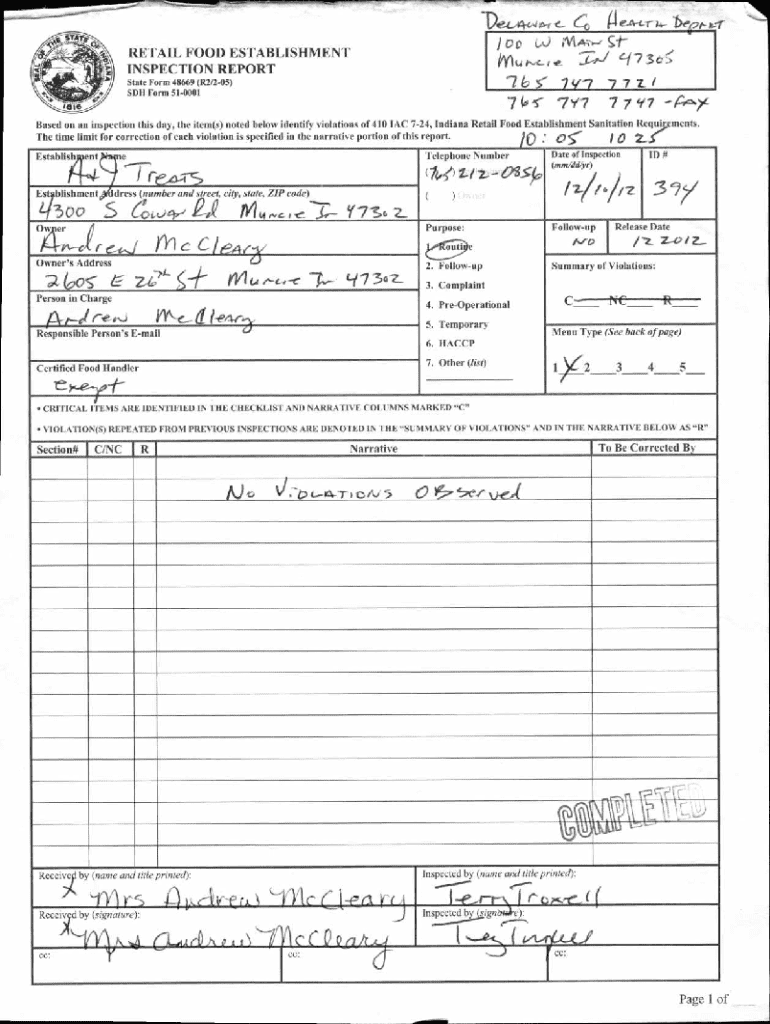 DELAWARE Co HEALTH DEPRET
100 W MAIN St
Muncie IN 47305
765 747 7721
765 747 7747 -FAX
SEAL OF THE STATE OF INDIANA
1816
RETAIL FOOD ESTABLISHMENT
INSPECTION REPORT
State Form 48669 (R2/2-05)
SDH Form 51-0001
Based on an inspection this day, the item(s) noted below identify violations of 410 IAC 7-24, Indiana Retail Food Establishment Sanitation Requirements.
The time limit for correction of each violation is specified in the narrative portion of this report.
10:05 1025
Establishment Name
A&J TREATS
Telephone Number
(765) 212-0356
( )
Date of Inspection
(mm/dd/yr)
12/10/12
ID #
394
Establishment Address (number and street, city, state, ZIP code)
4300 S Cowan Rd Muncie In 47302
Owner
Andrew McCleary
Purpose:
1. Routine
2. Follow-up
3. Complaint
4. Pre-Operational
5. Temporary
6. HACCP
7. Other (list)
Follow-up
NO
Release Date
12 2012
Owner's Address
2605 E 26th St Muncie In 47302
Summary of Violations:
C NC R
Person in Charge
Andrew McCleary
Responsible Person's E-mail
Menu Type (See back of page)
1 X 2 3 4 5
Certified Food Handler
Exempt
• CRITICAL ITEMS ARE IDENTIFIED IN THE CHECKLIST AND NARRATIVE COLUMNS MARKED "C"
• VIOLATION(S) REPEATED FROM PREVIOUS INSPECTIONS ARE DENOTED IN THE "SUMMARY OF VIOLATIONS" AND IN THE NARRATIVE BELOW AS "R"
Section# C/NC R Narrative To Be Corrected By
No VIOLATIONS OBserved
COMPLETED
Received by (name and title printed):
x Mrs Andrew McCleary
Inspected by (name and title printed):
Terry Troxell
Received by (signature):
x Mrs Andrew McCleary
Inspected by (signature):
Terry Troxell
cc: cc: cc:
Page 1 of